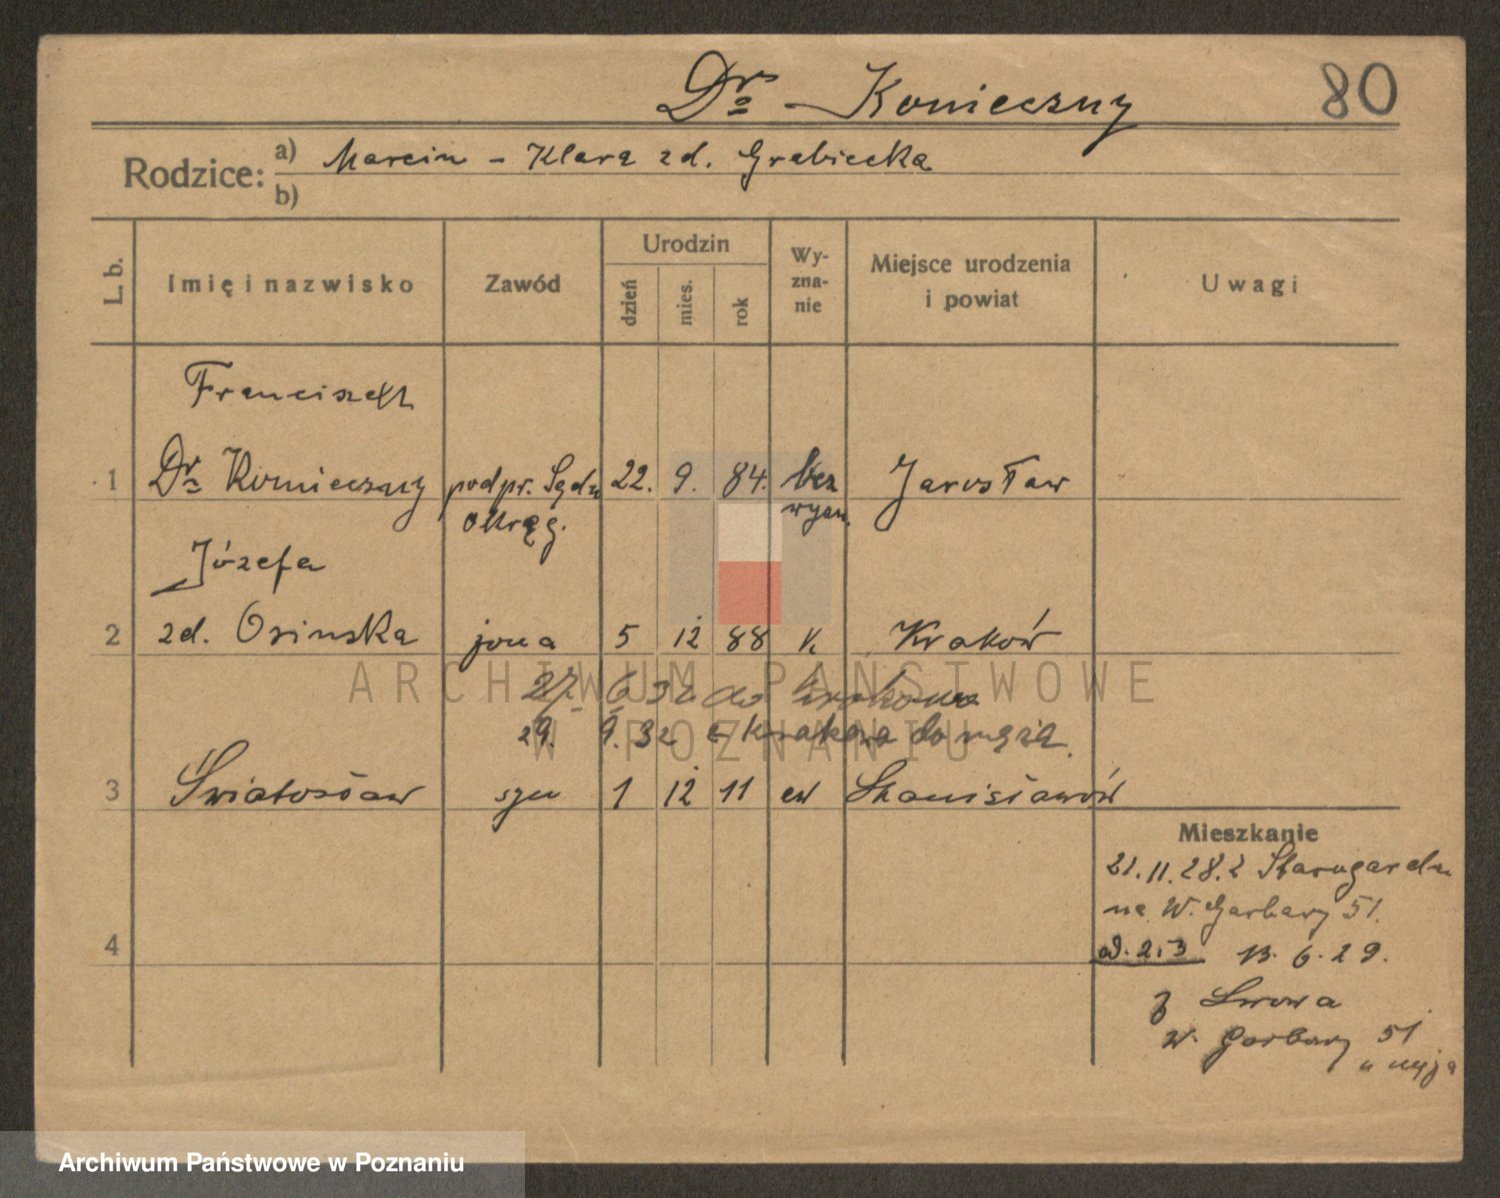 Dr. Konieczny
80
Rodzice:
a) Marcin - Klara zd. Grabiecka
b)
L. b.
Imię i nazwisko
Zawód
Urodzin
dzień
mies.
rok
Wy-
zna-
nie
Miejsce urodzenia
i powiat
Uwagi
Franciszek
1 Dr. Konieczny podpr. Sądu 22. 9. 84. bez Jarosław
okręg. wyzn.
Józefa
2 zd. Osinska żona 5 12 88 k. Kraków
27. 6 32 do Krakowa
29. 9. 32 z Krakowa do męża.
3 Światosław syn 1 12 11 ew Stanisławów
Mieszkanie
21.11.28. z Starogardu
na W. Garbary 51.
4
ad. 2.i3 13. 6. 29.
z Lwowa
W. Garbary 51
u męża
ARCHIWUM PAŃSTWOWE
W POZNANIU
Archiwum Państwowe w Poznaniu